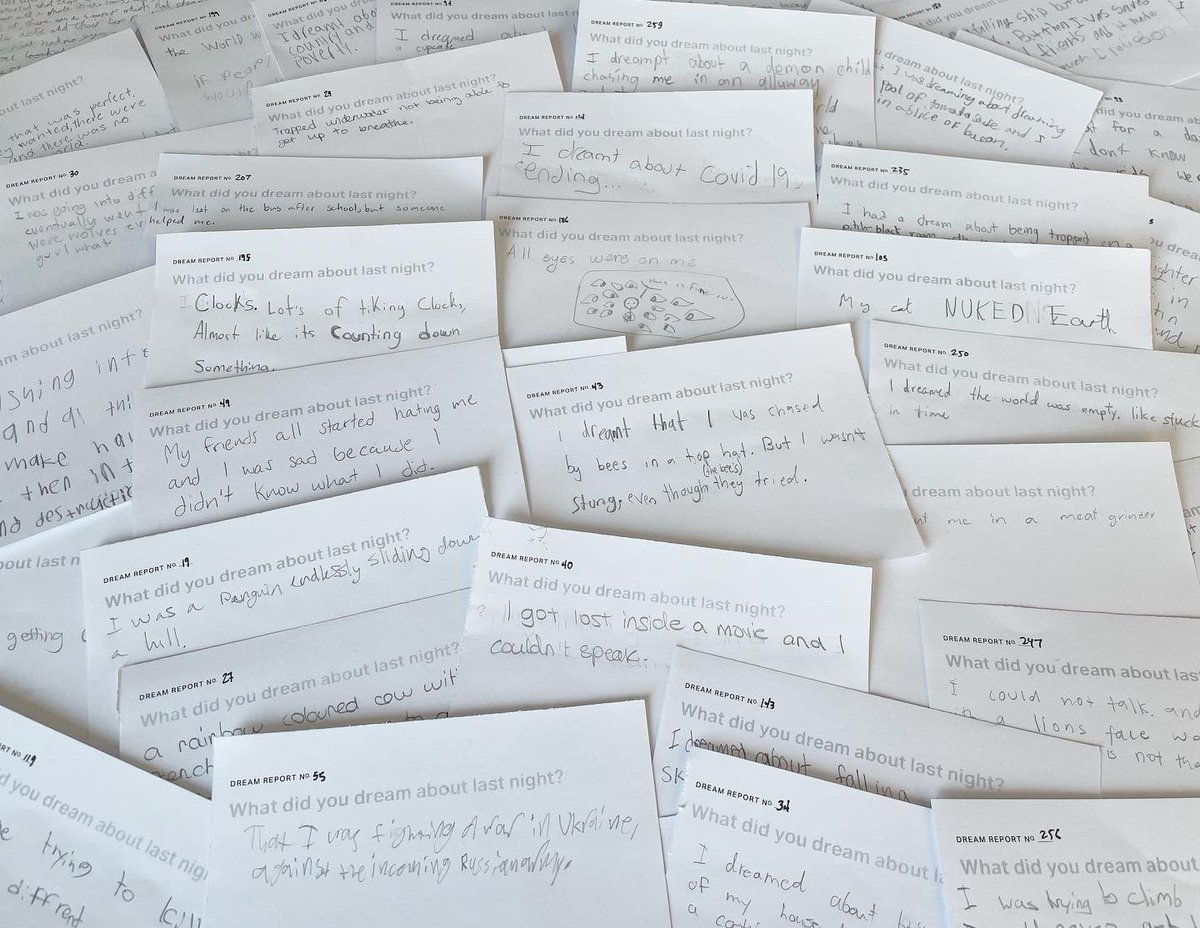 DREAM REPORT No. 199
the World
if people
I dreamt
I dreamed
a cupcake
DREAM REPORT No. 259
What did you dream about last night?
I dreampt about a demon child
chasing me in an allyway
falling ship but
But then I was saved
friends and it made
dream about last night?
I was dreaming about drowning
Pool of tomato and I
in a slice of bacon,
for a
don't know
last night?
that was perfect.
wanted, there were
and there was no
DREAM REPORT No. 29
What did you dream about last night?
Trapped underwater not being able to
get up to breathe.
What did you dream about last night?
I dreamt about Covid 19
ending...
DREAM REPORT No. 30
What did you dream a
I was going into diff
eventually went
were wolves
DREAM REPORT No. 207
What did you dream about last night?
I was lost on the bus after school, but someone
helped me.
DREAM REPORT No. 235
What did you dream about last night?
I had a dream about being trapped in a
pitch-black room
DREAM REPORT No. 186
What did you dream about last night?
All eyes were on me
DREAM REPORT No. 195
What did you dream about last night?
Clocks. Lot's of tiking Clocks,
Almost like its Counting down
Something.
DREAM REPORT No. 105
What did you dream about last night?
My cat NUKED Earth
DREAM REPORT No. 250
What did you dream about last night?
I dreamed the world was empty. like stuck
in time
am about last night?
shing int
and
make hai
then in t
nd destructi
DREAM REPORT No. 49
What did you dream about last night?
My friends all started hating me
and I was sad because I
didn't know what I did.
DREAM REPORT No. 43
What did you dream about last night?
I dreamt that I was chased
by bees in a top hat. But I wasn't
(the bees)
stung, even though they tried.
dream about last night?
me in a meat grinder
out last n
getting
DREAM REPORT No. 19
What did you dream about last night?
I was a Penguin endlessly sliding down
a hill.
DREAM REPORT No. 40
What did you dream about last night?
I got lost inside a movie and I
couldn't speak.
DREAM REPORT No. 247
What did you dream about last
I could not talk. and
in a lions face wa
is not tha
DREAM REPORT No. 27
What did you dream about last night?
a rainbow coloured cow wit
DREAM REPORT No. 143
What did you dream about last night?
I dreamed about falling
SK
DREAM REPORT No. 55
What did you dream about last night?
That I was fighting a war in Ukraine,
against the incoming Russian army.
RT No. 119
d you dream about last nig
trying to kill
different
DREAM REPORT No. 34
What did you dream about l
I dreamed about
of my house
a
DREAM REPORT No. 256
What did you dream about last
I was trying to climb